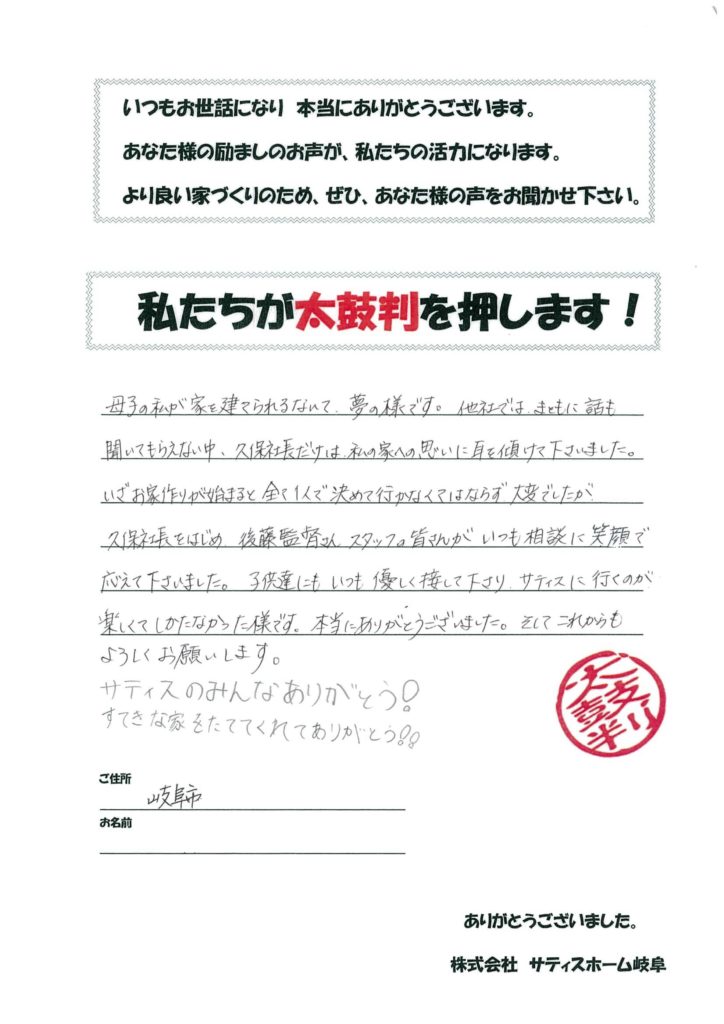 いつもお世話になり 本当にありがとうございます。
あなた様の励ましのお声が、私たちの活力になります。
より良い家づくりのため、ぜひ、あなた様の声をお聞かせ下さい。
私たちが太鼓判を押します!
母子の私が家を建てられるなんて、夢の様です。他社では、まともに話も
聞いてもらえない中、久保社長だけは、私の家への思いに耳を傾けて下さいました。
いざお家作りが始まると全て1人で決めて行かなくてはならず大変でしたが
久保社長をはじめ、後藤監督さん スタッフの皆さんが いつも相談に笑顔で
応えて下さいました。子供達にも いつも優しく接して下さり、サティスに行くのが
楽しくてしかたなかった様です。本当にありがとうございました。そしてこれからも
よろしくお願いします。
サティスのみんなありがとう!
すてきな家をたててくれてありがとう!!
太鼓判
ご住所
岐阜市
お名前
ありがとうございました。
株式会社 サティスホーム岐阜